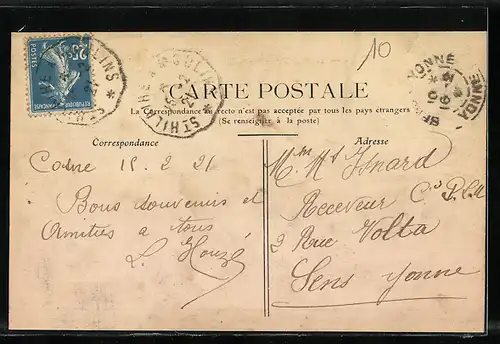 10
25
POSTES
REPUBLIQUE FRANÇAISE
MOULINS
ST HILAIRE
YONNE
CARTE POSTALE
La Correspondance au recto n'est pas acceptée par tous les pays étrangers
(Se renseigner à la poste)
Correspondance
Adresse
15 2 21
Bons souvenirs et
Amitiés a tous
L. Houzé
Mme Mr Isnard
Receveur
2 Rue Volta
Sens Yonne